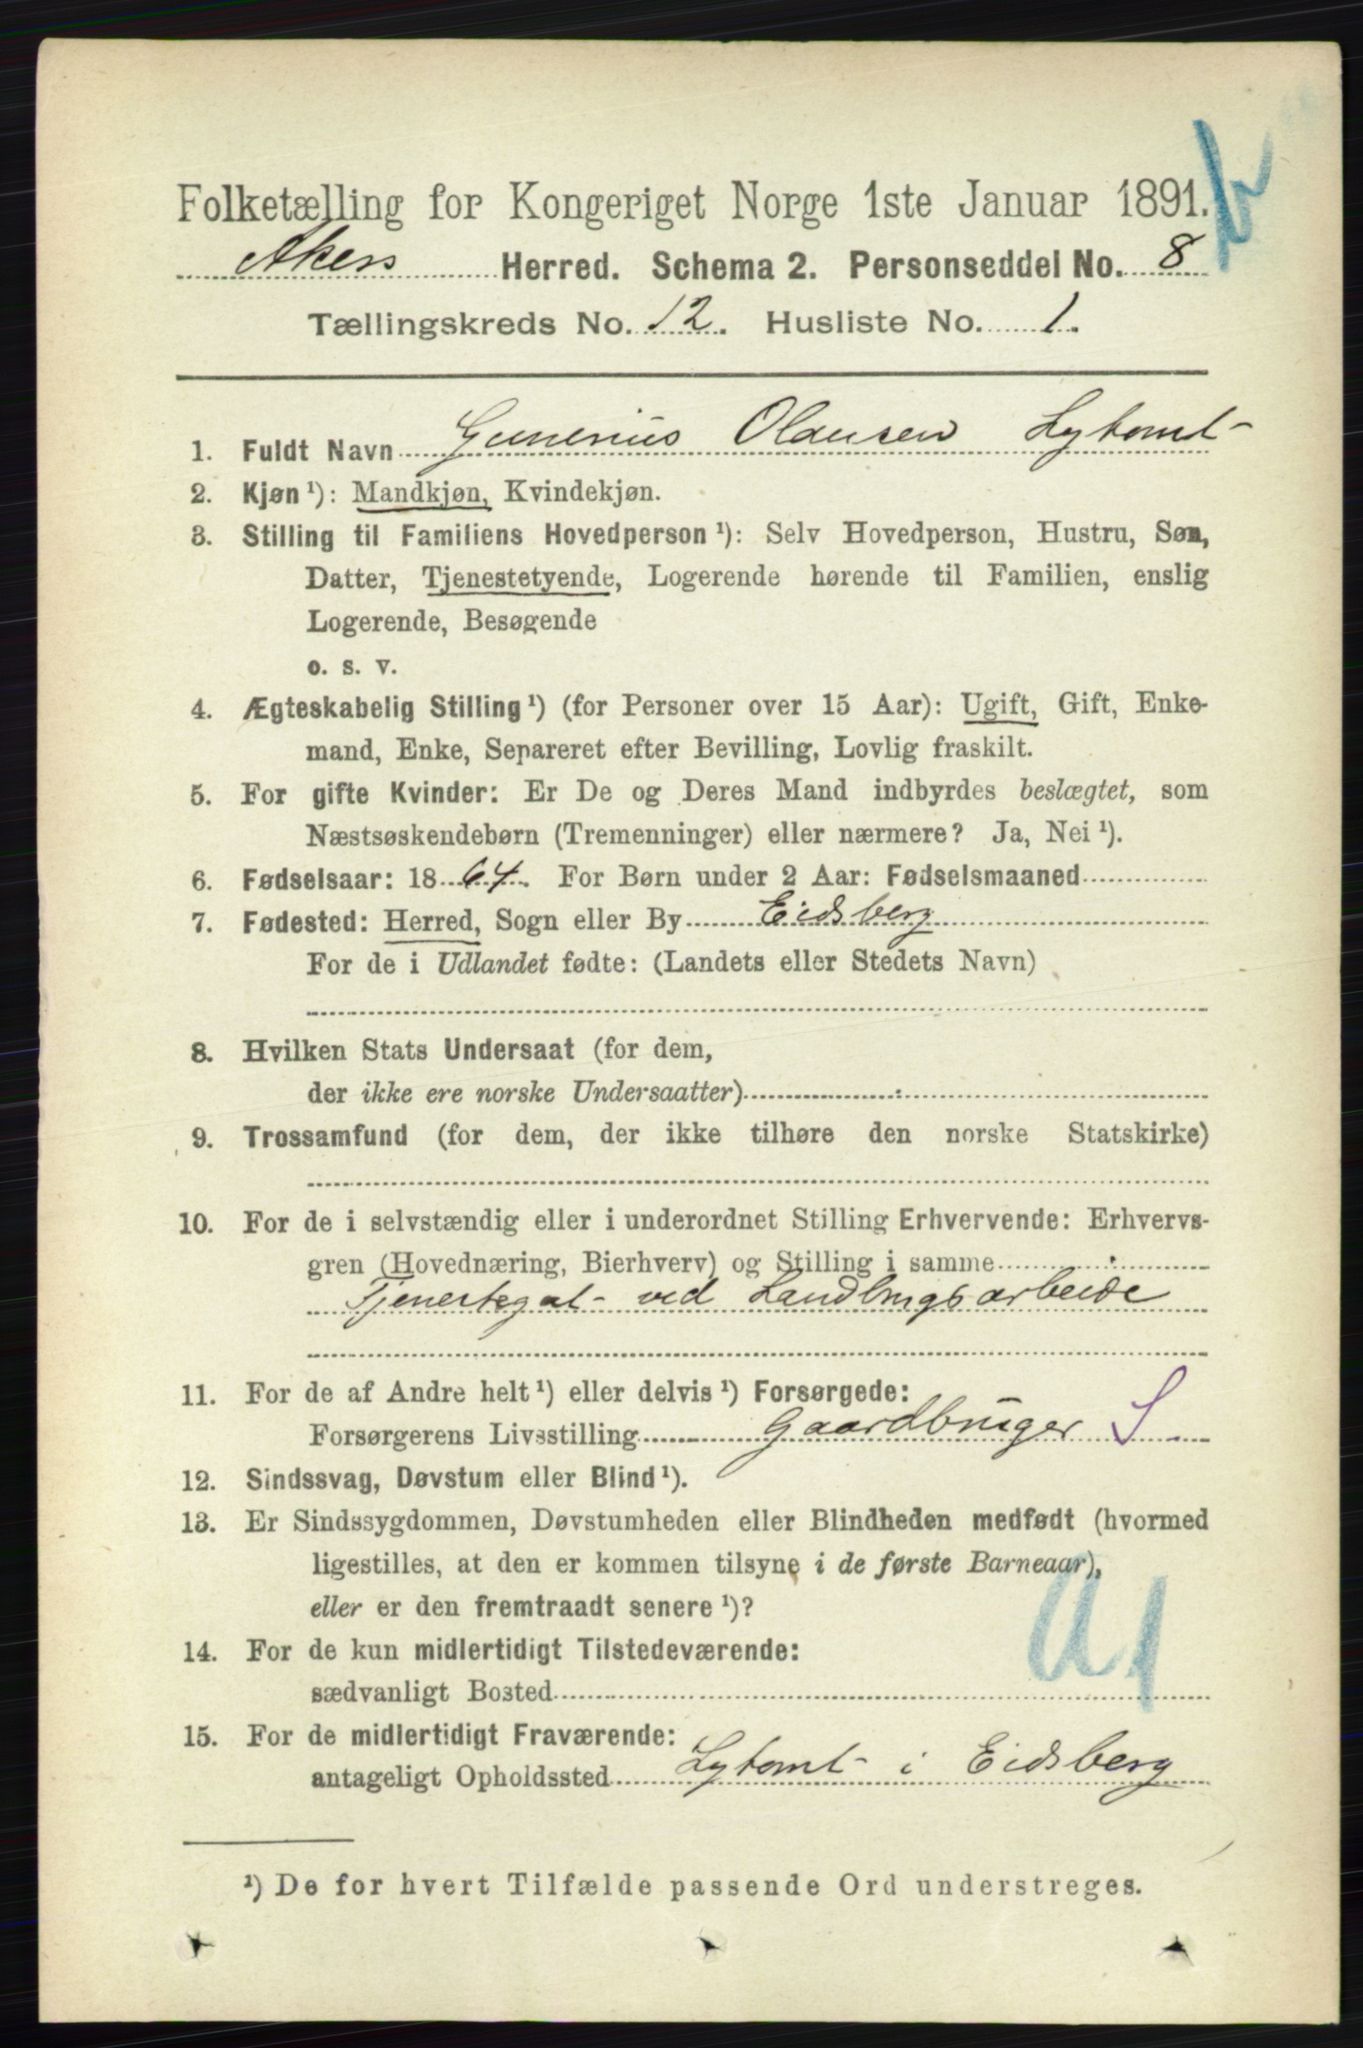 Folketælling for Kongeriget Norge 1ste Januar 1891.
Akers Herred. Schema 2. Personseddel No. 8
Tællingskreds No. 12. Husliste No. 1.
1. Fuldt Navn Gunerius Olausen Lytomt
2. Kjøn ¹): Mandkjøn, Kvindekjøn.
3. Stilling til Familiens Hovedperson ¹): Selv Hovedperson, Hustru, Søn,
Datter, Tjenestetyende, Logerende hørende til Familien, enslig
Logerende, Besøgende
o. s. v.
4. Ægteskabelig Stilling ¹) (for Personer over 15 Aar): Ugift, Gift, Enke-
mand, Enke, Separeret efter Bevilling, Lovlig fraskilt.
5. For gifte Kvinder: Er De og Deres Mand indbyrdes beslægtet, som
Næstsøskendebørn (Tremenninger) eller nærmere? Ja, Nei ¹).
6. Fødselsaar: 1864. For Børn under 2 Aar: Fødselsmaaned
7. Fødested: Herred, Sogn eller By Eidsberg
For de i Udlandet fødte: (Landets eller Stedets Navn)
8. Hvilken Stats Undersaat (for dem,
der ikke ere norske Undersaatter)
9. Trossamfund (for dem, der ikke tilhøre den norske Statskirke)
10. For de i selvstændig eller i underordnet Stilling Erhvervende: Erhvervs-
gren (Hovednæring, Bierhverv) og Stilling i samme
Tjenestegut ved Landbrugsarbeide
11. For de af Andre helt ¹) eller delvis ¹) Forsørgede:
Forsørgerens Livsstilling Gaardbruger S
12. Sindssvag, Døvstum eller Blind ¹).
13. Er Sindssygdommen, Døvstumheden eller Blindheden medfødt (hvormed
ligestilles, at den er kommen tilsyne i de første Barneaar),
eller er den fremtraadt senere ¹)?
a1
14. For de kun midlertidigt Tilstedeværende:
sædvanligt Bosted
15. For de midlertidigt Fraværende:
antageligt Opholdssted Lytomt i Eidsberg
¹) De for hvert Tilfælde passende Ord understreges.